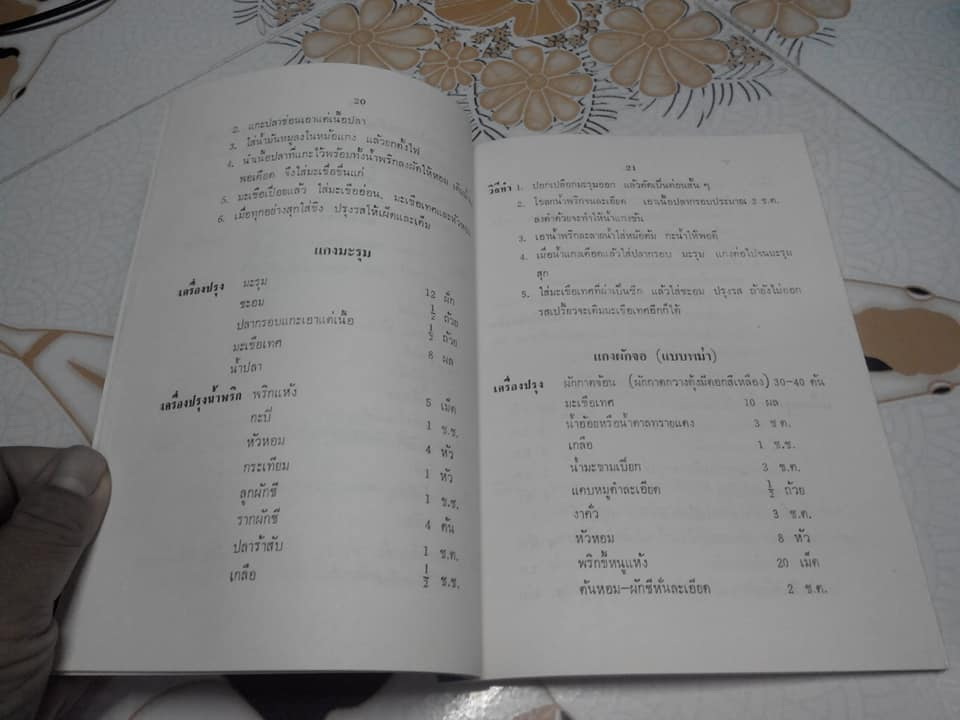 20
2. แกะปลาช่อนเอาแต่เนื้อปลา
3. ใส่น้ำมันหมูลงในหม้อแกง แล้วยกตั้งไฟ
4. นำเนื้อปลาที่แกะไว้พร้อมทั้งน้ำพริกลงผัดให้หอม เติมน้ำ
พอเดือด จึงใส่มะเขือขื่นแก่
5. มะเขือเปื่อยแล้ว ใส่มะเขืออ่อน, มะเขือเทศและหัวหอม
6. เมื่อทุกอย่างสุกใส่ขิง ปรุงรสให้เผ็ดและเค็ม
แกงมะรุม
เครื่องปรุง มะรุม 12 ฝัก
ชะอม ½ ถ้วย
ปลากรอบแกะเอาแต่เนื้อ ½ ถ้วย
มะเขือเทศ 8 ผล
น้ำปลา
เครื่องปรุงน้ำพริก พริกแห้ง 5 เม็ด
กะปิ 1 ช.ช.
หัวหอม 4 หัว
กระเทียม 1 หัว
ลูกผักชี 1 ช.ช.
รากผักชี 4 ต้น
ปลาร้าสับ 1 ช.ต.
เกลือ ½ ช.ช.
21
วิธีทำ 1. ปอกเปลือกมะรุมออก แล้วตัดเป็นท่อนสั้น ๆ
2. โขลกน้ำพริกจนละเอียด เอาเนื้อปลากรอบประมาณ 2 ช.ต.
ลงตำด้วยจะทำให้น้ำแกงข้น
3. เอาน้ำพริกละลายน้ำใส่หม้อต้ม กะน้ำให้พอดี
4. เมื่อน้ำแกงเดือดแล้วใส่ปลากรอบ มะรุม แกงต่อไปจนมะรุม
สุก
5. ใส่มะเขือเทศที่ผ่าเป็นซีก แล้วใส่ชะอม ปรุงรส ถ้ายังไม่ออก
รสเปรี้ยวจะเติมมะเขือเทศอีกก็ได้
แกงผักจอ (แบบพม่า)
เครื่องปรุง ผักกาดจ้อน (ผักกาดกวางตุ้งมีดอกสีเหลือง) 30-40 ต้น
มะเขือเทศ 10 ผล
น้ำอ้อยหรือน้ำตาลทรายแดง 3 ช.ต.
เกลือ 1 ช.ช.
น้ำมะขามเปียก 3 ช.ต.
แคบหมูตำละเอียด ½ ถ้วย
งาคั่ว 3 ช.ต.
หัวหอม 8 หัว
พริกขี้หนูแห้ง 20 เม็ด
ต้นหอม-ผักชีหั่นละเอียด 2 ช.ต.